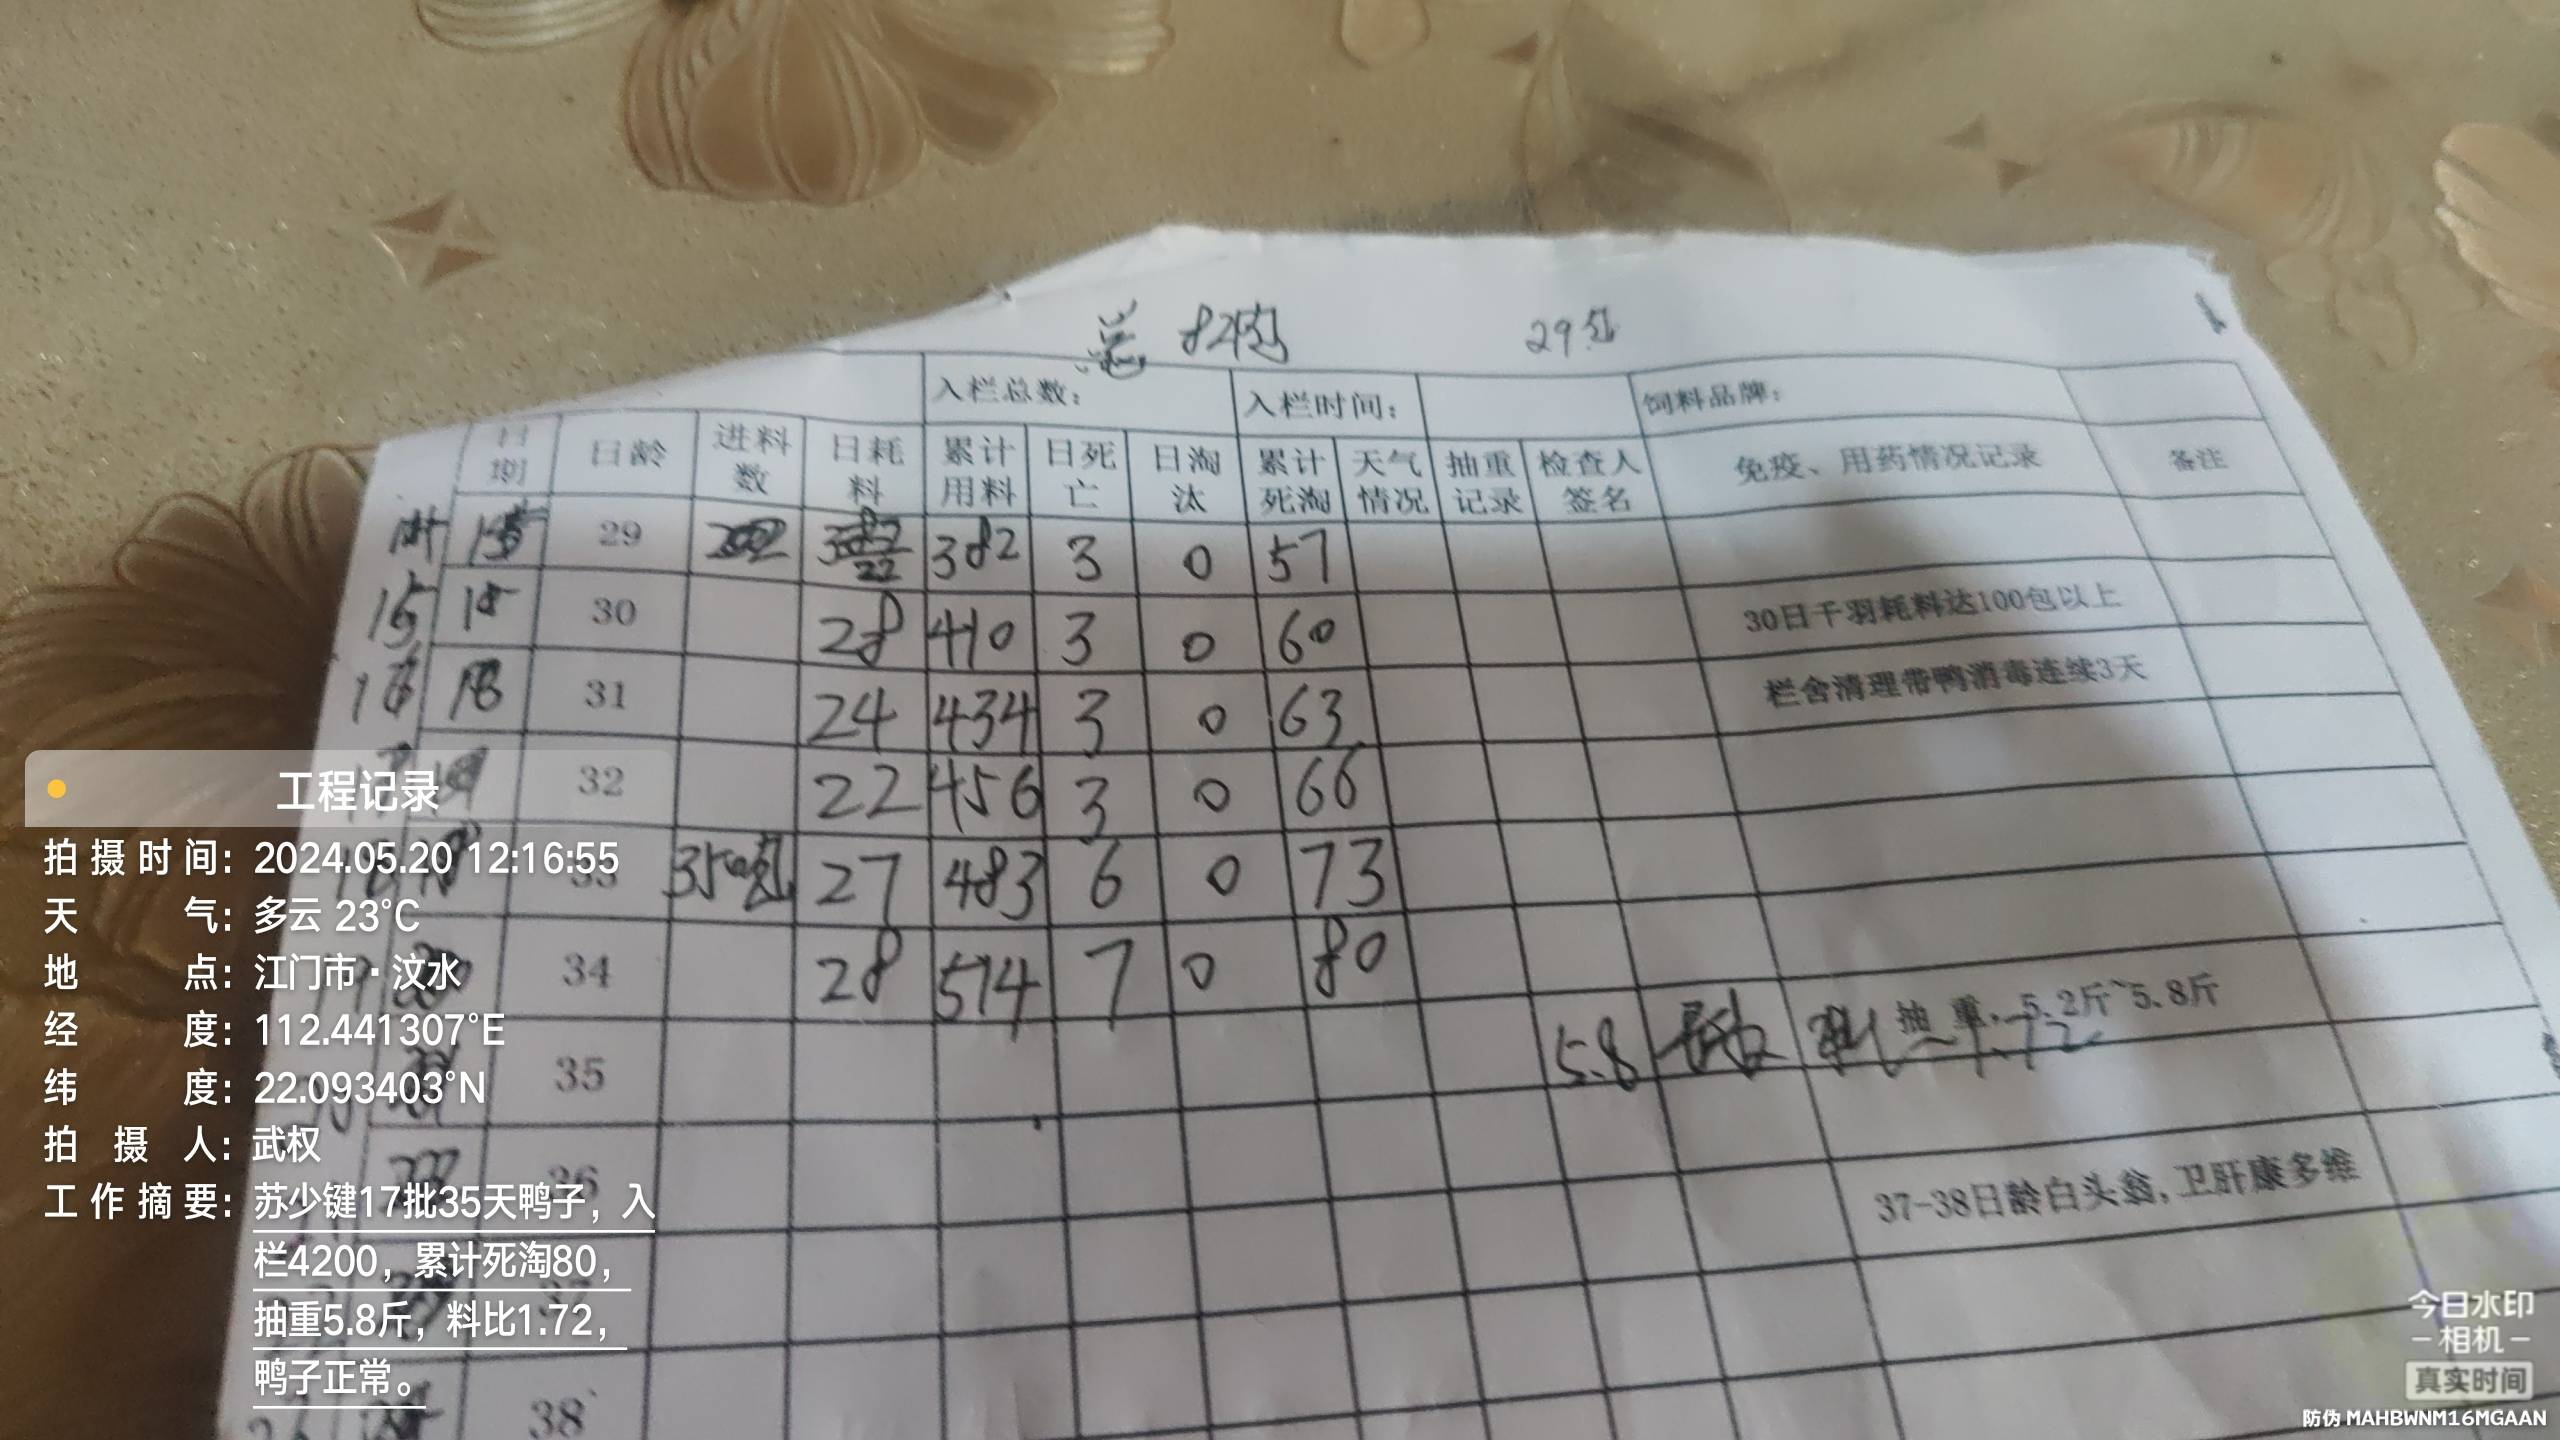 总 29包
入栏总数： 入栏时间： 饲料品牌：
日期 日龄 进料数 日耗料 累计用料 日死亡 日淘汰 累计死淘 天气情况 抽重记录 检查人签名 免疫、用药情况记录 备注
29 22 382 3 0 57
15 30 28 410 3 0 60 30日千羽耗料达100包以上
16 18 31 24 434 3 0 63 栏舍清理带鸭消毒连续3天
32 22 456 3 0 66
33 350包 27 483 6 0 73
34 28 514 7 0 80
35 5.8 抽重：5.2斤~5.8斤 1.72
36
37 37-38日龄白头翁，卫肝康多维
38
工程记录
拍摄时间：2024.05.20 12:16:55
天气：多云 23°C
地点：江门市·汶水
经度：112.441307°E
纬度：22.093403°N
拍摄人：武权
工作摘要：苏少键17批35天鸭子，入
栏4200，累计死淘80，
抽重5.8斤，料比1.72，
鸭子正常。
今日水印
-相机-
真实时间
防伪 MAHBWNM16MGAAN